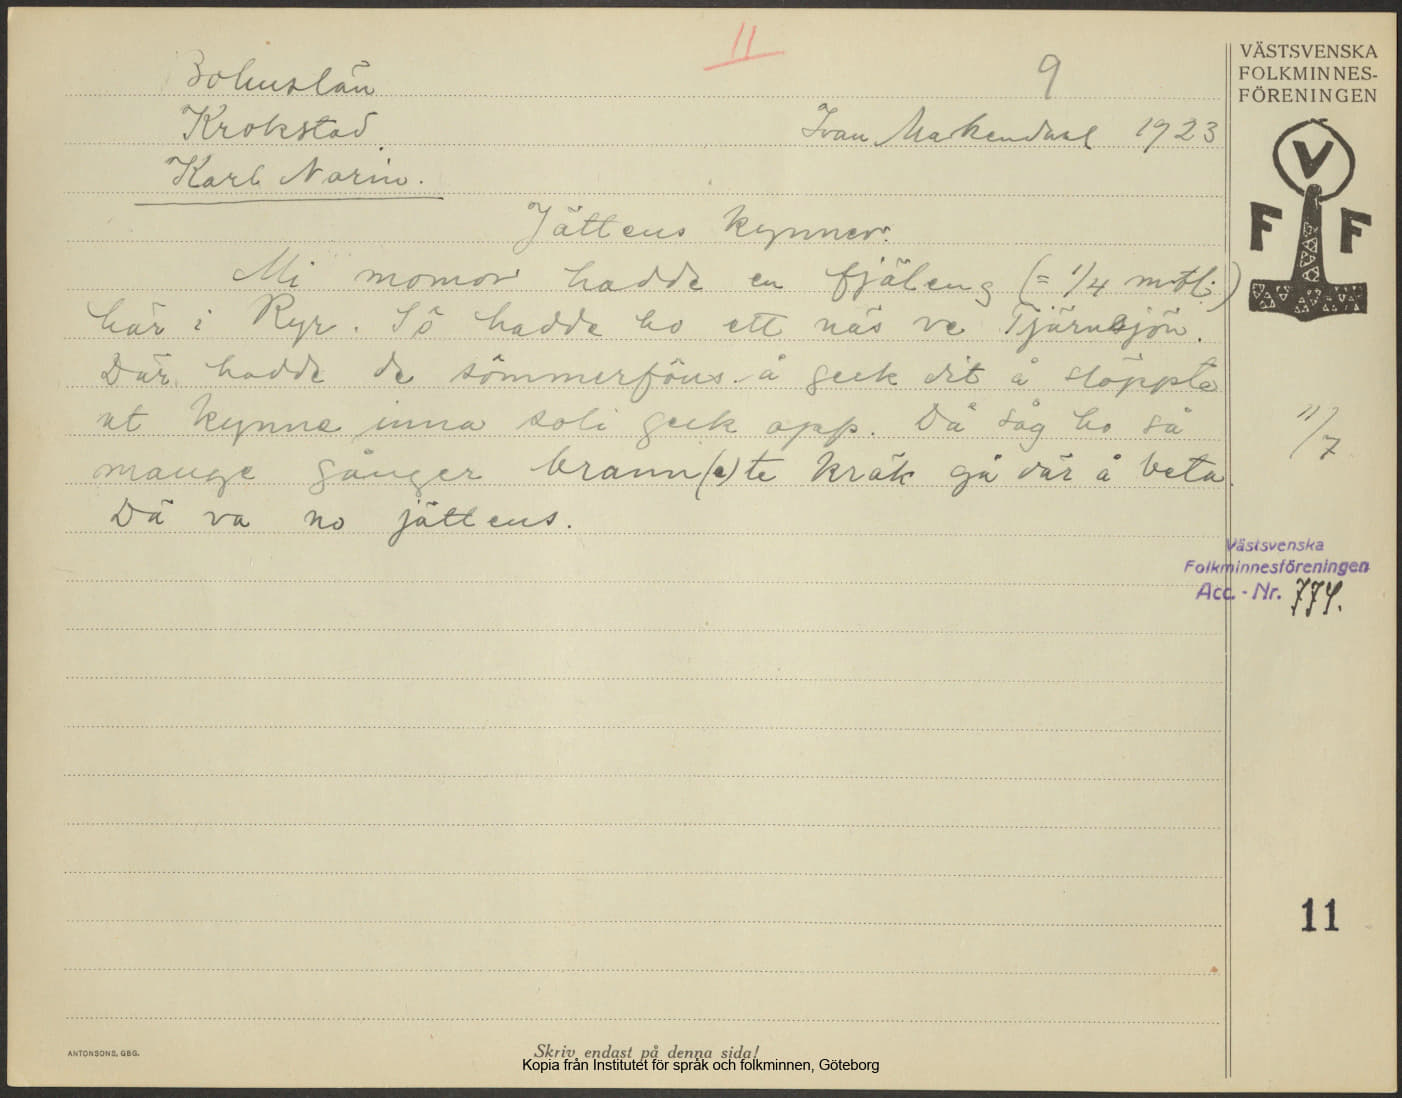 11
9
Bohuslän
Krokstad
Ivar Markendal 1923
Karl Norin.
Jättens kynner.
Mi momor hadde en fjäleng (= 1/4 mtl.)
här i Ryr. Sô hadde ho ett näs ve Tjärnsjön.
Där hadde de sômmerfôus å geek dit å slôppte
ut kynne inna soli geek opp. Då såg ho så
mange gånger brann(e)te kräk gå där å beta.
Dä va no jättens.
VÄSTSVENSKA
FOLKMINNES-
FÖRENINGEN
V
F F
11/7
Västsvenska
Folkminnesföreningen
Acc.-Nr. 774.
11
ANTONSONS, GBG.
Skriv endast på denna sida!
Kopia från Institutet för språk och folkminnen, Göteborg